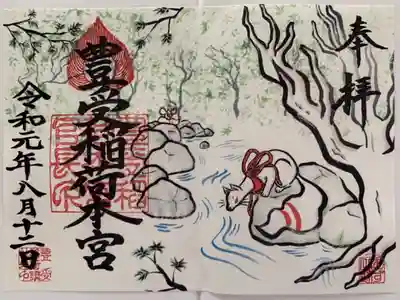 奉拝
豊受稲荷本宮
令和元年八月十一日